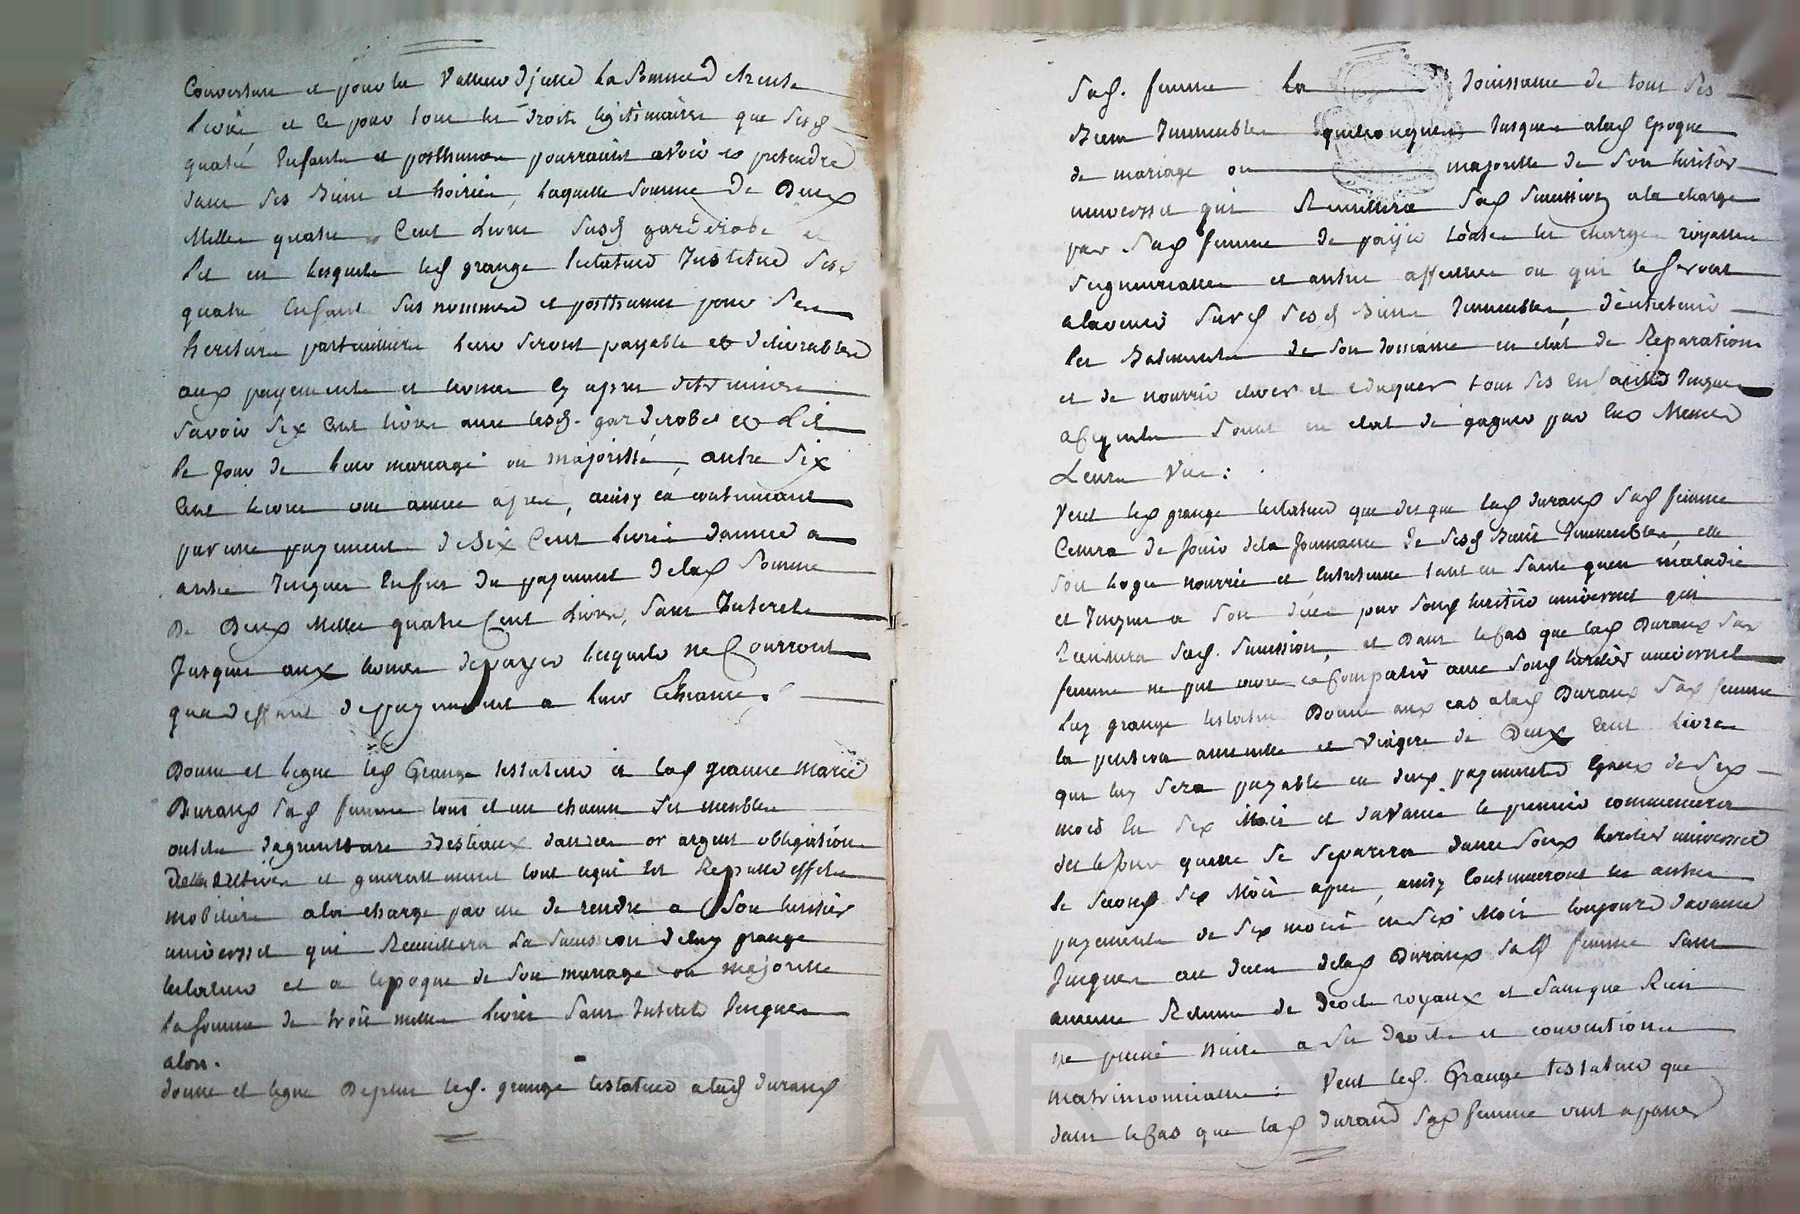 Couverture et pour la Valleur d'jcelle la Somme de trente
livre et ce pour tous les droits legitimaires que sesd
quatre Enfants et posthumes pourroient avoir et pretendre
dans ses Biens et hoiries, laquelle somme de Deux
Milles quatre Cent Livres susd garderobe et
lit en lesquels led grange testateur Institue sesd
quatre Enfants sus nommes et posthumes pour ses
heritiers particulliers leur seront payable et delivrables
aux payements et termes cy apres determines
savoir six Cent livres avec lesd. garderobes et Lit
le jour de leur mariage ou majorité, autre Six
Cent livres une année apres, ainsy en continuant
par une payement de Six Cent livres d'année a
autre Jusques Enfin du payement de lad Somme
De Deux Milles quatre Cent Livres, Sans Interets
Jusques aux termes de payer lesquels ne Courront
qua deffaut de payement a leur Echeance.
Donne et legue led Grange testateur a lad jeanne marie
Durand sad femme tous et un chacun ses meubles
outils d'agriculture Bestiaux danrées or argent obligations
et generallement tout cequi est Reputé effets
mobiliers a la charge par elle de rendre a Son heritier
universel qui Recueillera la succession deluy grange
testateur et a l'epoque de son mariage ou majorité
la somme de trois milles livres Sans Interets Jusques
alors.
donne et legue Deplus led. grange testateur a lad durand
Sad. femme la jouissance de tous ses
Biens Immeubles quelconques Jusques alad Epoque
de mariage ou majorité de son heritier
universel qui Recueillera Sad Succession a la charge
par Sad femme de payer toutes les charges royalles
seigneurialles et autres affectées ou qui le seront
alavenir sur sesd Biens Immeubles, d'entretenir
les Batiments de son domaine en etat de Reparations
et de nourrir elever et eduquer tous ses Enfants Jusques
acequils soient en etat de gagner par Eux Memes
Leurs Vie :
Veut led grange testateur que des que lad durand sad femme
Cessera de jouir dela Jouissance de sesd Biens Immeubles, elle
soit logée nourrie et entretenue tant en Santé quen maladie
et Jusques a son decès par sond heritier universel qui
Recueillera Sad. Succession, et Dans le Cas que lad Durand sad
femme ne put vivre et Compatir avec sond heritier universel
luy grange testateur Donne aux cas a lad Durand Sad femme
la pention annuelle et viagere de Deux Cent Livres
qui luy sera payable en deux payements Egaux de Six
mois En Six Mois et d'avance le premier commencera
des le jour quelle se separera davec sond heritier universel
le second six Mois apres, ainsy Continueront les autres
payements de Six mois en Six Mois toujours davance
Jusques au deces delad Durand Sad femme sans
aucune Retenue de Droits royaux et sans que Rien
ne puisse nuire a ses Droits et conventions
matrimonialles : Veut led. Grange testateur que
dans le Cas que lad durand sad femme vint a passer